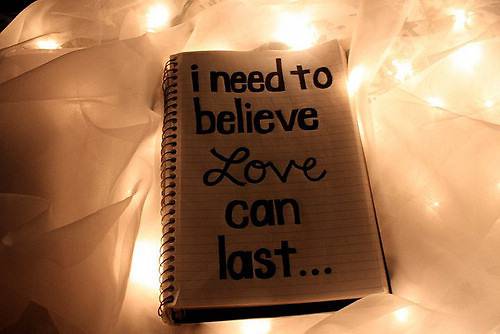 i need to
believe
Love
can
last...